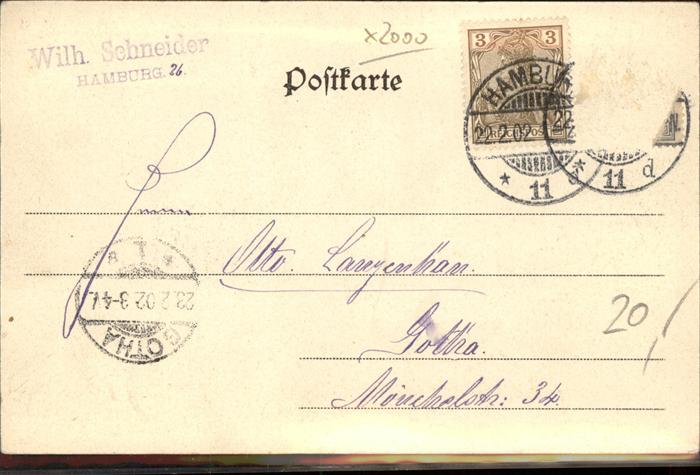 Wilh. Schneider
HAMBURG. 26.
x2000
Postkarte
3
REICHSPOST
HAMBU
22.2.02
22.
* 11 d *
11 d
Otto. Langenhan.
Gotha.
20,
23.2.02 3-4 N.
GOTHA